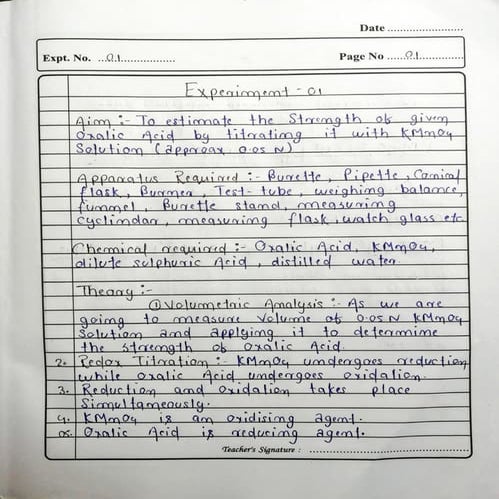 Date ....................
Expt. No. ...01................ Page No ......01..........
Experiment - 01
Aim :- To estimate the Strength of given
Oxalic Acid by titrating it with KMnO4
Solution (approax 0.05 N)
Apparatus Required :- Burette, Pipette, Conical
flask, Burner, Test-tube, weighing balance,
funnel, Burette stand, measuring
cyclindar, measuring flask, watch glass etc
Chemical required :- Oxalic Acid, KMnO4,
dilute sulphuric Acid, distilled water.
Theory :-
① Volumetric Analysis :- As we are
going to measure volume of 0.05 N KMnO4
Solution and applying it to determine
the strength of Oxalic Acid.
2. Redox Titration :- KMnO4 undergoes reduction
while oxalic Acid undergoes oxidation.
3. Reduction and oxidation takes place
Simultaneously.
4. KMnO4 is an oxidising agent.
5. Oxalic Acid is reducing agent.
Teacher's Signature : ..............................